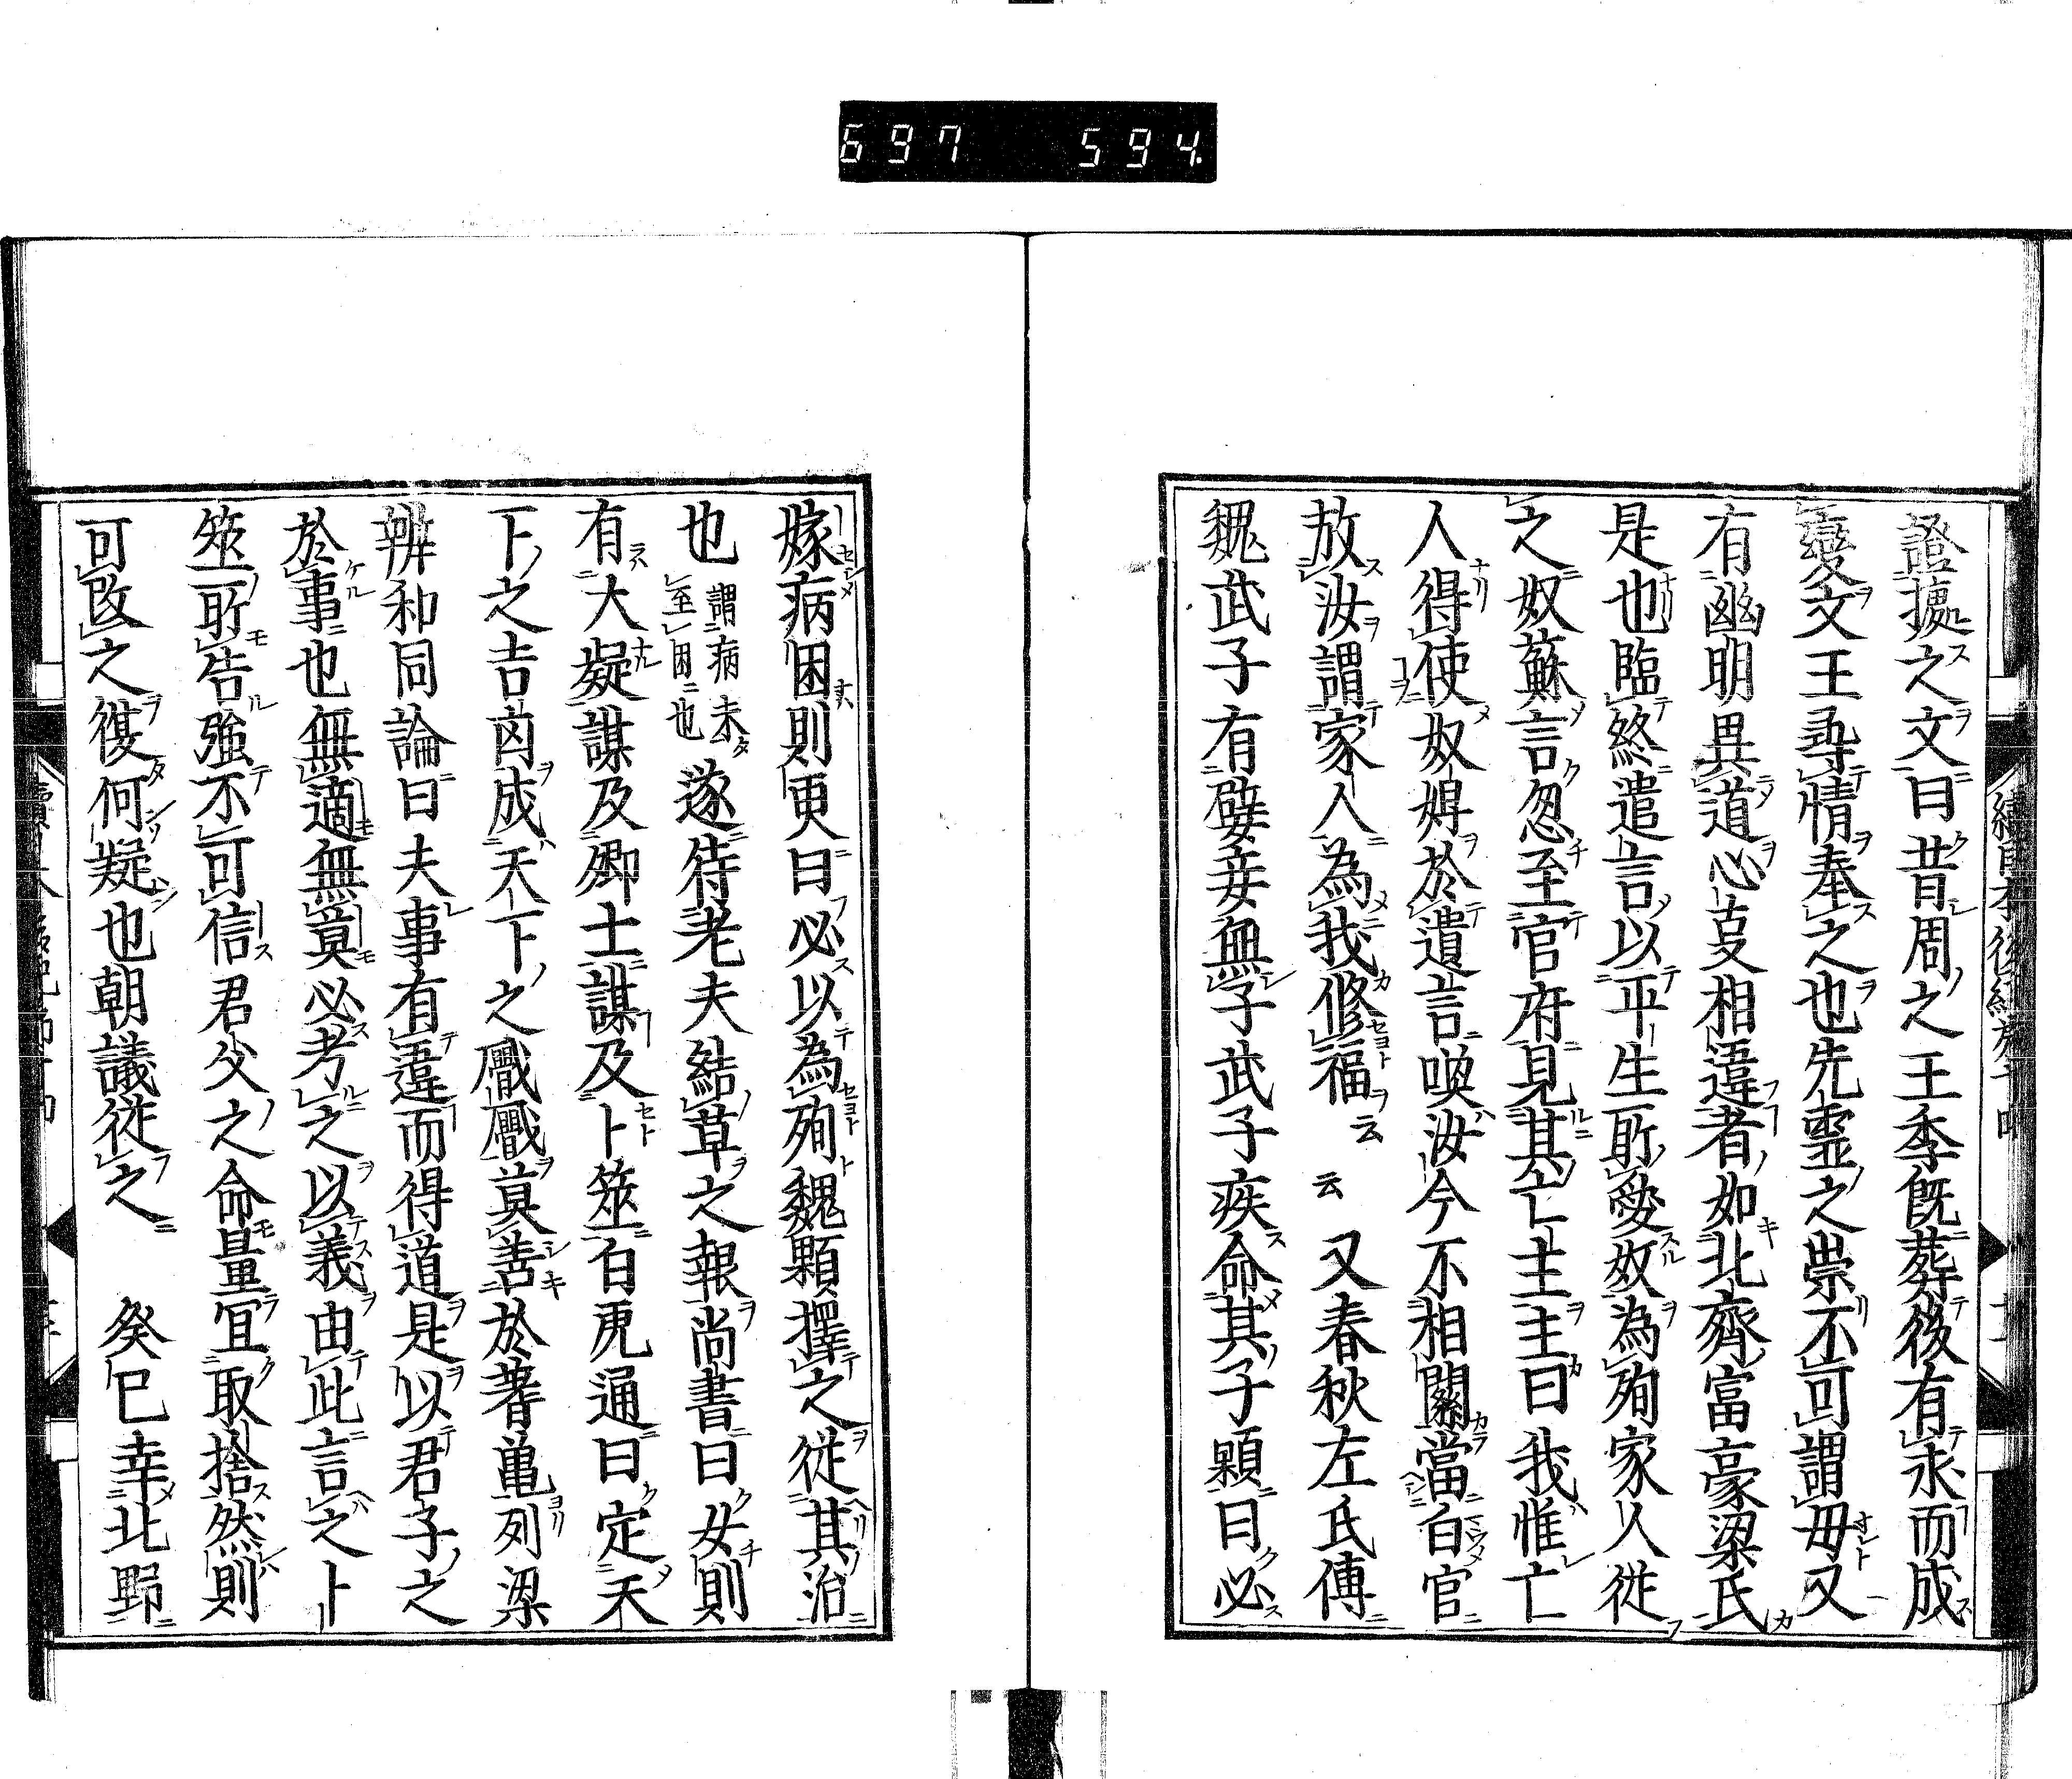 697 594.
證據之文曰昔周之王季既葬後有求而成
變文王尋情奉之也先靈之祟不可謂毋又
有幽明異道心事相違者如北齊富豪梁氏
是也臨終遣言以平生所愛奴為殉家人從
之奴蘇言忽至官府見其亡主主曰我惟亡
人得使奴婢於遺言喚汝今不相關當白官
放汝謂家人為我修福云云又春秋左氏傳
魏武子有嬖妾無子武子疾命其子顆曰必
嫁病困則更曰必以為殉魏顆擇之從其治
也謂病未至困也遂待老夫結草之報尚書曰女則
有大疑謀及卿士謀及卜筮白虎通曰定天
下之吉凶成天下之亹亹莫善於蓍龜列梁
辨和同論曰夫事有違而得道是以君子之
於事也無適無莫必考之以義由此言之卜
筮所告強不可信君父之命量宜取捨然則
可改之復何疑也朝議從之 癸巳幸北野